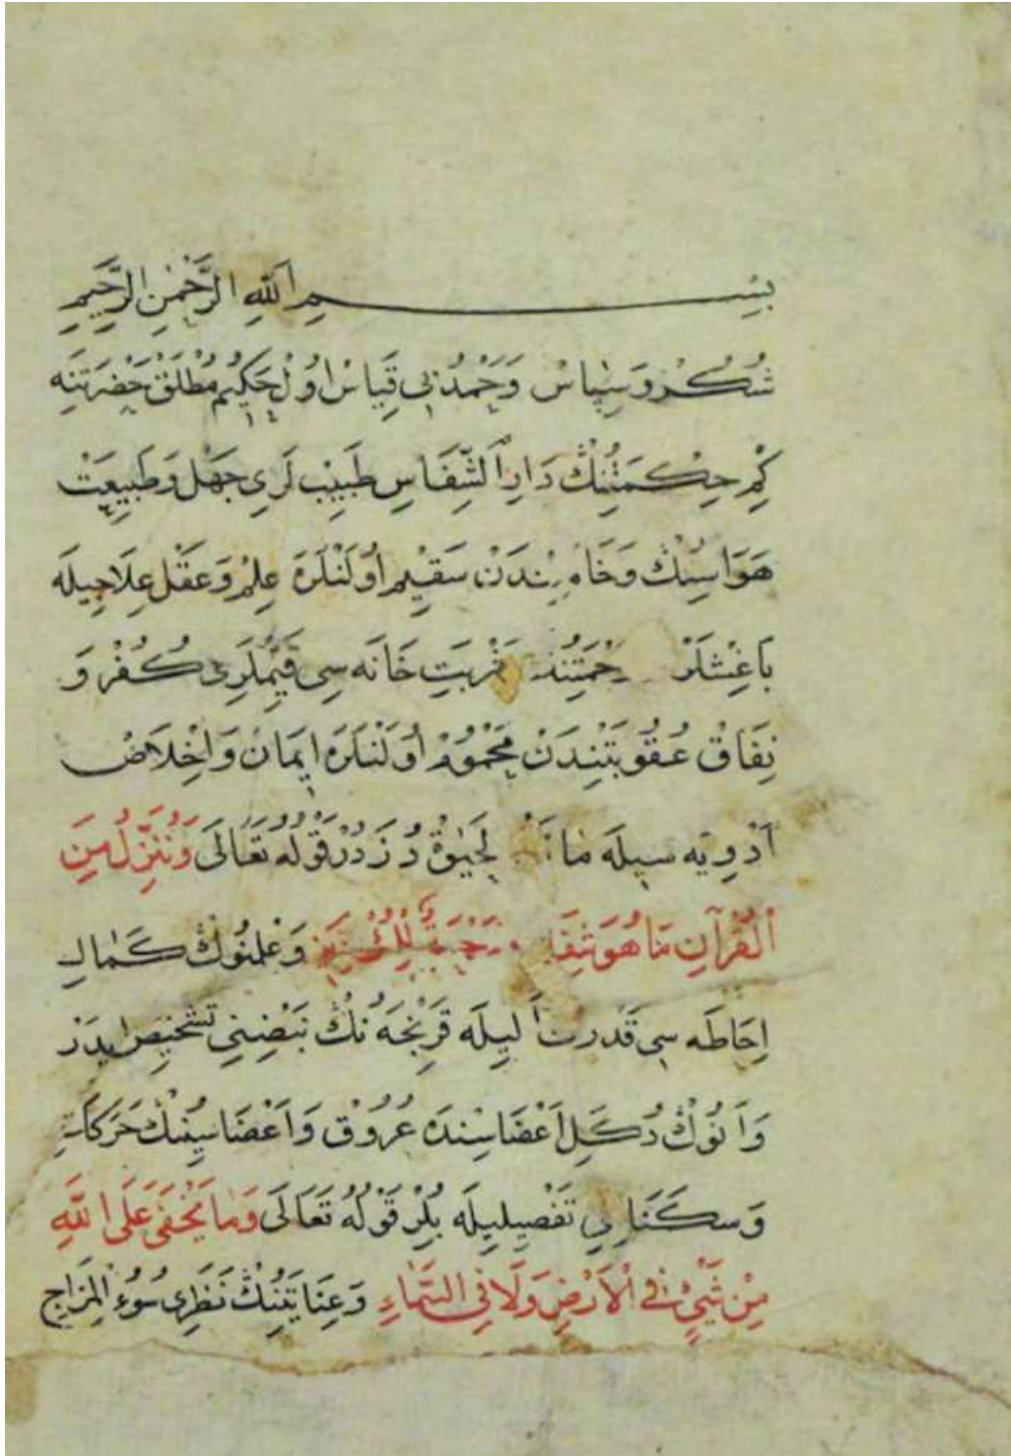 بِسْمِ اللهِ الرَّحْمٰنِ الرَّحِيمِ
شُكْرُ وَسِپَاسْ وَحَمْدُ بِي قِيَاسْ اُولْ حَكِيمِ مُطْلَقْ حَضْرَتِنَه
كِمْ حِكْمَتِنُڭْ دَارِ الشِّفَاسِ طَبِيبْ لَرِي جَهْل وَطَبِيعَتْ
هَوَاسِنُڭْ وَخَامَتِنْدَنْ سَقِيمْ اُولَنْلَرَهْ عِلْمْ وَعَقْل عِلَاجِيلَه
بَاغِشْلَرْ شَرْبَتِ خَانَه سِي قَيِّمْلَرِي كُفْرْ وَ
نِفَاقْ عُقُوبَتِنْدَنْ مَحْمُومْ اُولَنْلَرَهْ اِيمَانْ وَاِخْلَاصْ
اَدْوِيَه سِيلَه لَحَيٰوةْ دُزَرْدُرْ قَوْلُهُ تَعَالَى وَنُنَزِّلُ مِنَ
الْقُرْآنِ مَا هُوَ شِفَا وَرَحْمَةٌ وَعِلْمِنُوڭْ كَمَالِ
اِحَاطَه سِي قُدْرَتْ اَلِيلَه قَرِنْجَه نُڭْ نَبْضِنِي تَشْخِيصْ اِيدَرْ
وَاَنُوڭْ دُكَلِ اَعْضَاسِنْدَهْ عُرُوقْ وَاَعْضَاسِنُڭْ حَرَكَاتِ
وَسَكَنَاتِنِي تَفْصِيلِيلَه بِلُرْ قَوْلُهُ تَعَالَى وَمَا يَخْفَى عَلَى اللهِ
مِنْ شَيْءٍ فِي الْاَرْضِ وَلَا فِي السَّمَاءِ وَعِنَايَتِنُڭْ نَظَرِي سُوءُ الْمِزَاجِ